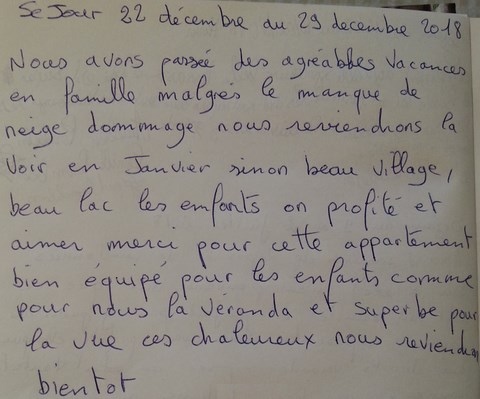 Sejour 22 décembre au 29 decembre 2018
Nous avons passée des agréabbes vacances
en famille malgrés le manque de
neige dommage nous reviendrons la
voir en Janvier sinon beau village,
beau lac les enfants on profité et
aimer merci pour cette appartement
bien équipé pour les enfants comme
pour nous la véranda et superbe pour
la vue ces chaleureux nous reviendrons
bientot